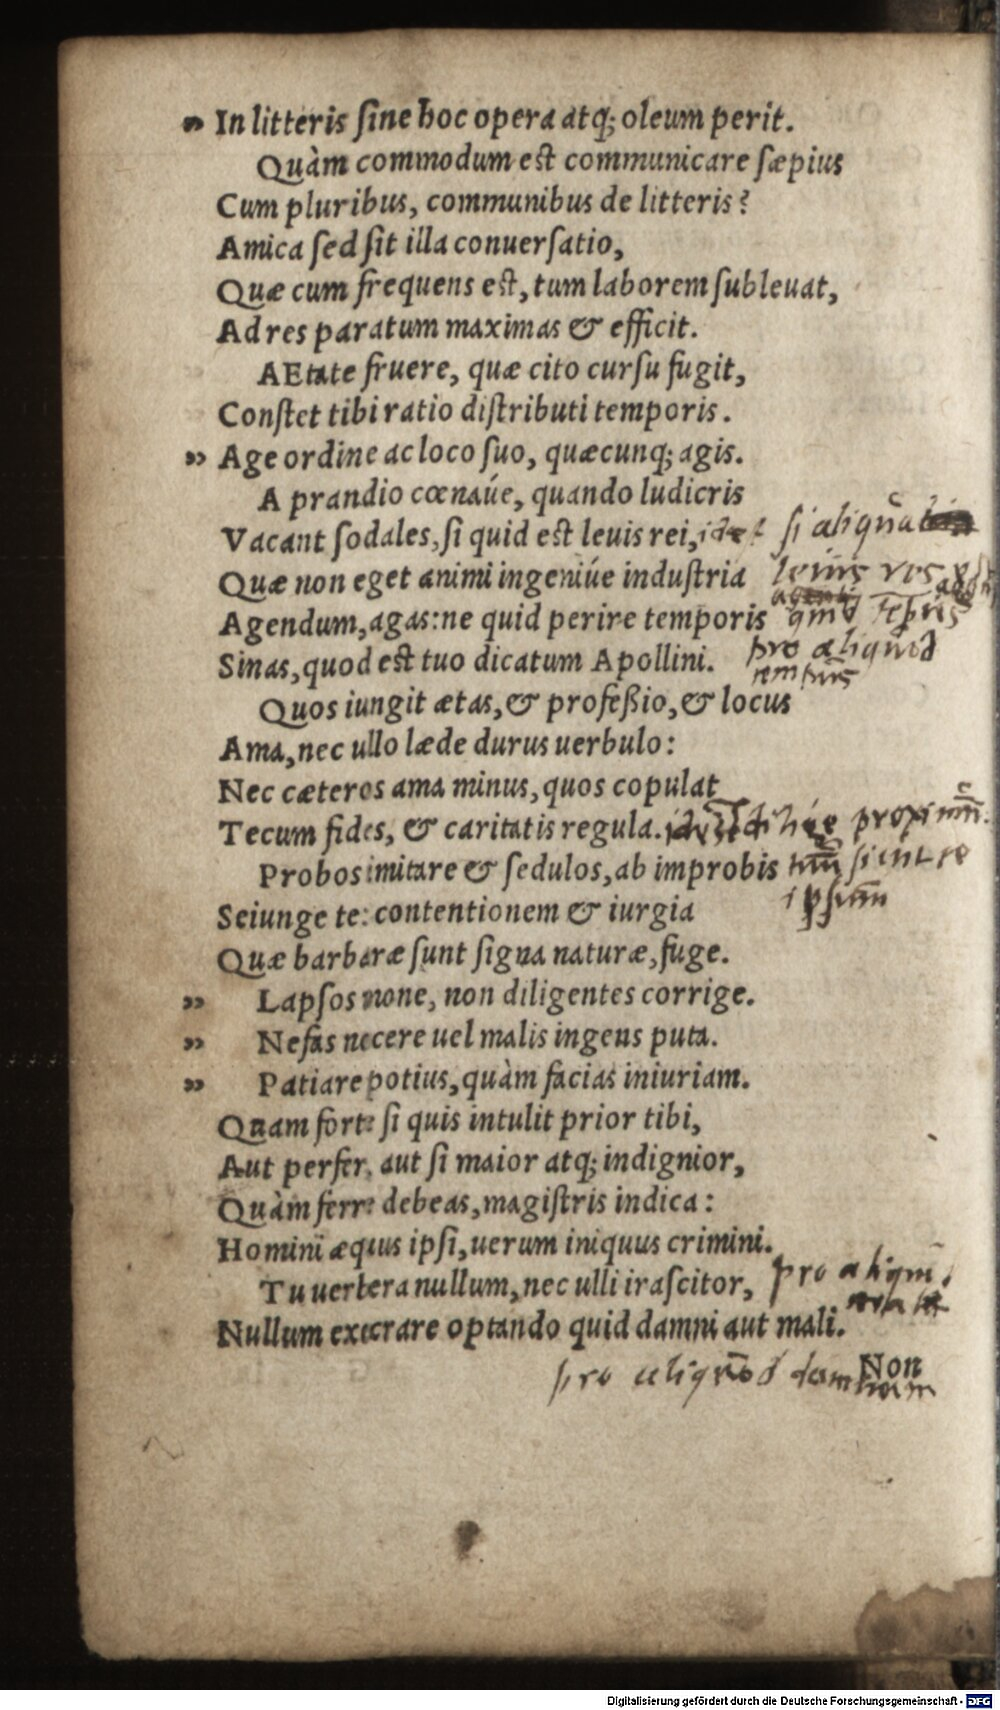 „ In litteris ſine hoc opera atq; oleum perit.
Quàm commodum eſt communicare ſæpius
Cum pluribus, communibus de litteris?
Amica ſed ſit illa conuerſatio,
Quæ cum frequens eſt, tum laborem ſubleuat,
Ad res paratum maximas & efficit.
AEtate fruere, quæ cito curſu fugit,
Conſtet tibi ratio diſtributi temporis.
„ Age ordine ac loco ſuo, quæcunq; agis.
A prandio cœnaúe, quando ludicris
Vacant ſodales, ſi quid eſt leuis rei, id eſt ſi aliqua
Quæ non eget animi ingeniúe induſtria leuis res
Agendum, agas: ne quid perire temporis quid
Sinas, quod eſt tuo dicatum Apollini. pro aliquod
tempus
Quos iungit ætas, & profeßio, & locus
Ama, nec ullo læde durus uerbulo:
Nec cæteros ama minus, quos copulat
Tecum fides, & caritatis regula. dilige proximū
Probos imitare & ſedulos, ab improbis tuū ſicut te
Seiunge te: contentionem & iurgia ipſum
Quæ barbaræ ſunt ſigna naturæ, fuge.
„ Lapſos mone, non diligentes corrige.
„ Nefas nocere uel malis ingens puta.
„ Patiare potius, quàm facias iniuriam.
Quam forte ſi quis intulit prior tibi,
Aut perfer, aut ſi maior atq; indignior,
Quàm ferre debeas, magiſtris indica:
Homini æquus ipſi, uerum iniquus crimini.
Tu uerbera nullum, nec ulli iraſcitor, pro aliquē
Nullum execrare optando quid damni aut mali.
Non
pro aliquod damnum
Digitalisierung gefördert durch die Deutsche Forschungsgemeinschaft - DFG